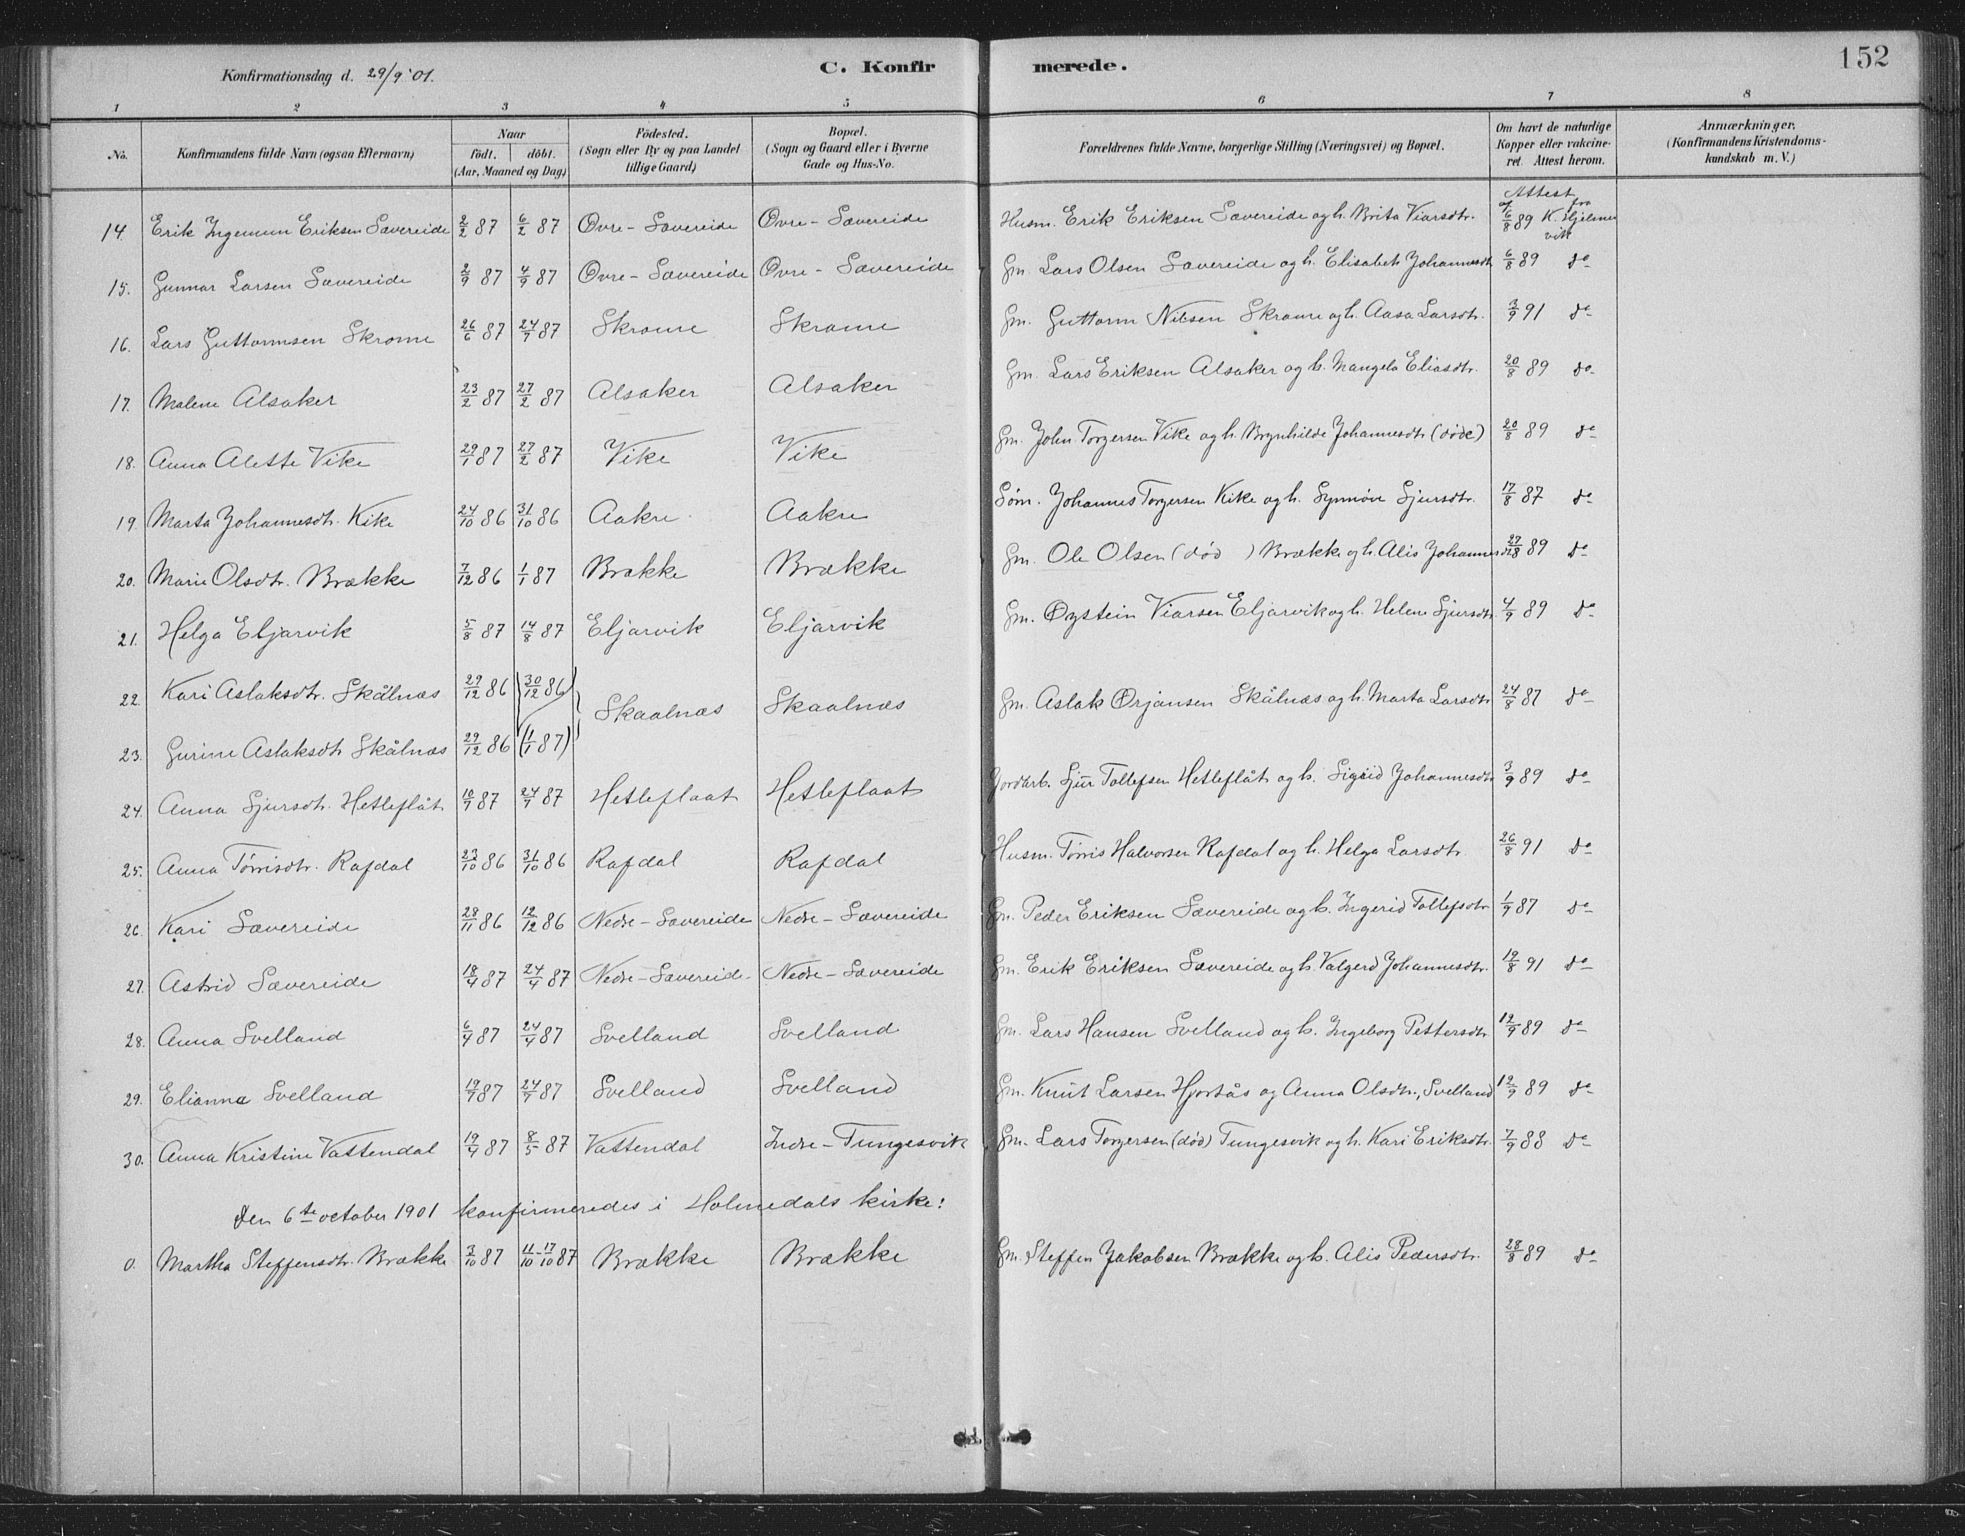 152
Konfirmationsdag d. 29/9 '01.
C. Konfirmerede.
1 2 3 4 5 6 7 8
No. Konfirmandens fulde Navn (ogsaa Efternavn) Naar födt. döbt. (Aar, Maaned og Dag) Födested. (Sogn eller By og paa Landet tillige Gaard) Bopæl. (Sogn og Gaard eller i Byerne Gade og Hus-No. Forældrenes fulde Navne, borgerlige Stilling (Næringsvei) og Bopæl. Om havt de naturlige Kopper eller vakcineret. Attest herom. Anmærkninger. (Konfirmandens Kristendomskundskab m. V.)
14. Erik Ingemun Eriksen Sævereide 2/2 87 6/2 87 Øvre-Sævereide Øvre-Sævereide Husm. Erik Eriksen Sævereide og h. Brita Viarsdtr. Attest af 6/8 89 fra K. Hjelmevik
15. Gunnar Larsen Sævereide 2/9 87 4/9 87 Øvre-Sævereide Øvre-Sævereide Gm. Lars Olsen Sævereide og h. Elisabet Johannesdtr. 6/8 89 do
16. Lars Guttormsen Skrome 26/6 87 24/7 87 Skrome Skrome Gm. Guttorm Nilsen Skrome og h. Aasa Larsdtr. 3/9 91 do
17. Malene Alsaker 23/2 87 27/2 87 Alsaker Alsaker Gm. Lars Eriksen Alsaker og h. Mangela Eliasdtr. 20/8 89 do
18. Anna Alette Vike 29/1 87 27/2 87 Vike Vike Gm. John Torgersen Vike og h. Brynhilde Johannesdtr (døde) 20/8 89 do
19. Marta Johannesdtr. Kike 24/10 86 31/10 86 Aakre Aakre Søm. Johannes Torgersen Kike og h. Synnøve Sjursdtr. 17/8 87 do
20. Marie Olsdtr. Brække 7/12 86 1/1 87 Brække Brække Gm. Ole Olsen (død ) Brække og h. Alis Johannesdtr 27/8 89 do
21. Helga Eljarvik 5/8 87 14/8 87 Eljarvik Eljarvik Gm. Øystein Viarsen Eljarvik og h. Helene Sjursdtr. 4/9 89 do
22. Kari Aslaksdtr. Skålnæs 29/12 86 (30/12 86) Skaalnæs Skaalnæs Gm. Aslak Ørjansen Skålnæs og h. Marta Larsdtr 24/8 87 do
23. Gurine Aslaksdtr Skålnæs 29/12 86 (1/1 87)
24. Anna Sjursdtr. Hetleflåt 10/7 87 24/7 87 Hetleflaat Hetleflaat Jordarb. Sjur Tollefsen Hetleflåt og h. Sigrid Johannesdtr 3/9 89 do
25. Anna Tørrisdtr. Rafdal 23/10 86 31/10 86 Rafdal Rafdal Husm. Tørris Halvorsen Rafdal og h. Helga Larsdtr. 26/8 91 do
26. Kari Sævereide 28/11 86 12/12 86 Nedre-Sævereide Nedre-Sævereide Gm. Peder Eriksen Sævereide og h. Ingerid Tollefsdtr. 1/9 87 do
27. Astrid Sævereide 18/4 87 24/4 87 Nedre-Sævereide Nedre-Sævereide Gm. Erik Eriksen Sævereide og h. Valgerd Johannesdtr. 19/8 91 do
28. Anna Svelland 6/4 87 24/4 87 Svelland Svelland Gm. Lars Hansen Svelland og h. Ingeborg Pettersdtr 12/9 89 do
29. Elianna Svelland 19/7 87 24/7 87 Svelland Svelland Gm. Knut Larsen Hjortås og Anna Olsdtr., Svelland 12/9 89 do
30. Anna Kristine Vattendal 19/4 87 8/5 87 Vattendal Indre-Tungesvik Gm. Lars Torgersen (død) Tungesvik og h. Kari Eriksdtr. 7/9 88 do
Den 6te october 1901 konfirmeredes i Holmedals kirke:
0. Martha Steffensdtr. Brække 3/10 87 11/10-17/10 87 Brække Brække Gm. Steffen Jakobsen Brække og h. Alis Pedersdtr. 28/8 89 do